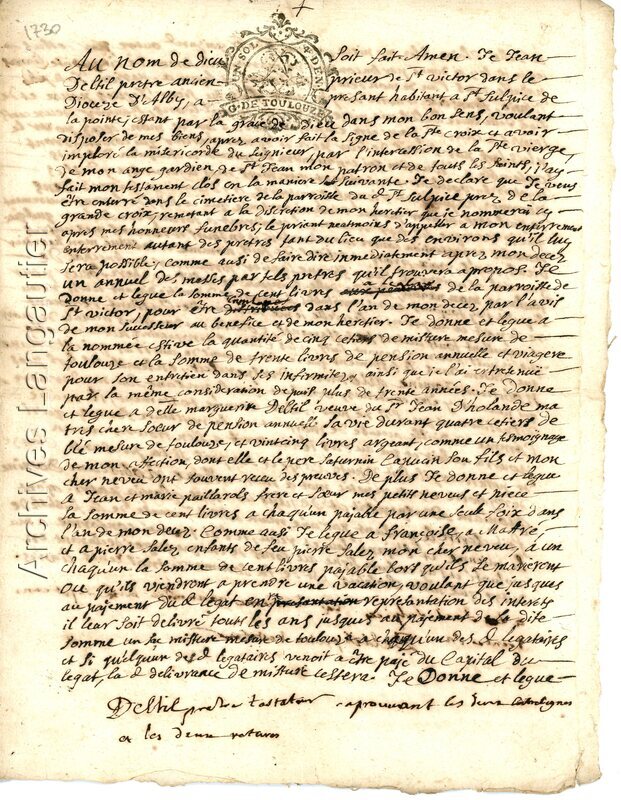 1730
UN SOL 4 DEN
G. DE TOULOU
Au nom de dieu soit fait Amen. Je Jean
Deltil pretre ancien prieur de St victor dans le
Dioceze D'Alby, a presant habitant a St Sulpice de
la pointe, estant par la grace de Dieu dans mon bon sens, voulant
disposer de mes biens, aprez avoir fait la signe de la Ste croix et avoir
imploré la misericorde du seigneur, par l'intercession de la Ste vierge,
de mon ange gardien de St Jean mon patron et de touts les saints, J'ay
fait mon testament clos en la maniere suivante. Je declare que Je veus
être enterré dans le cimetiere de la parroisse du d. St Sulpice prez de la
grande croix, remetant a la discretion de mon heretier que je nommerai cy
apres mes honneurs funebres, le priant neatmoins d'appeller a mon enterrement
enterrement autant des pretres tant du lieu que des environs qu'il luy
sera possible, comme aussi de faire dire immediatement aprez mon decez
un annuel des messes par tels pretres qu'il trouvera a propos. Je
Donne et legue la somme de cent livres de la parroisse de
St victor, pour être dans l'an de mon decez par l'avis
de mon successeur au benefice et de mon heretier. Je donne et legue a
la nommée estive la quantité de cinq cetiers de misture mesure de
toulouze et la somme de trente livres de pension annuelle et viagere
pour son entretien dans ses infirmitez, ainsi que je l'ai entretenue
par la même consideration depuis plus de trente années. Je donne
et legue a delle marguerite Deltil veuve du Sr Jean D'holande ma
tres cher sœur de pension annuelle sa vie durant quatre cetiers de
blé mesure de toulouze, et vint cinq livres argeant, comme un temoignage
de mon affection, dont elle et le pere saturnin Capucin son fils et mon
cher neveu ont souvent recu des preuves. De plus Je donne et legue
a Jean et marie paillarols frere et sœur mes petits neveus et niece
la somme de cent livres a chaqu'un payable par une seule foix dans
l'an de mon decez. Comme aussi Je legue a françoise, a
et a pierre salez enfants de feu pierre salez mon cher neveu, a un
chaqu'un la somme de cent livres payable lors qu'ils se marieront
ou qu'ils viendront a prendre une vacation, voulant que jusques
au payement du d. legat en representation des interets
il leur soit delivré touts les ans jusques au payement de la dite
somme un misture mesure de toulouze a chaqu'un des d. legataires
et si quelqu'un des d. legataires venoit a être payé du Capital du
legat, la d. delivrance de misture cessera. Je Donne et legue
Deltil pretre testateur aprouvant les deux
et les deux ratures
Archives Langautier